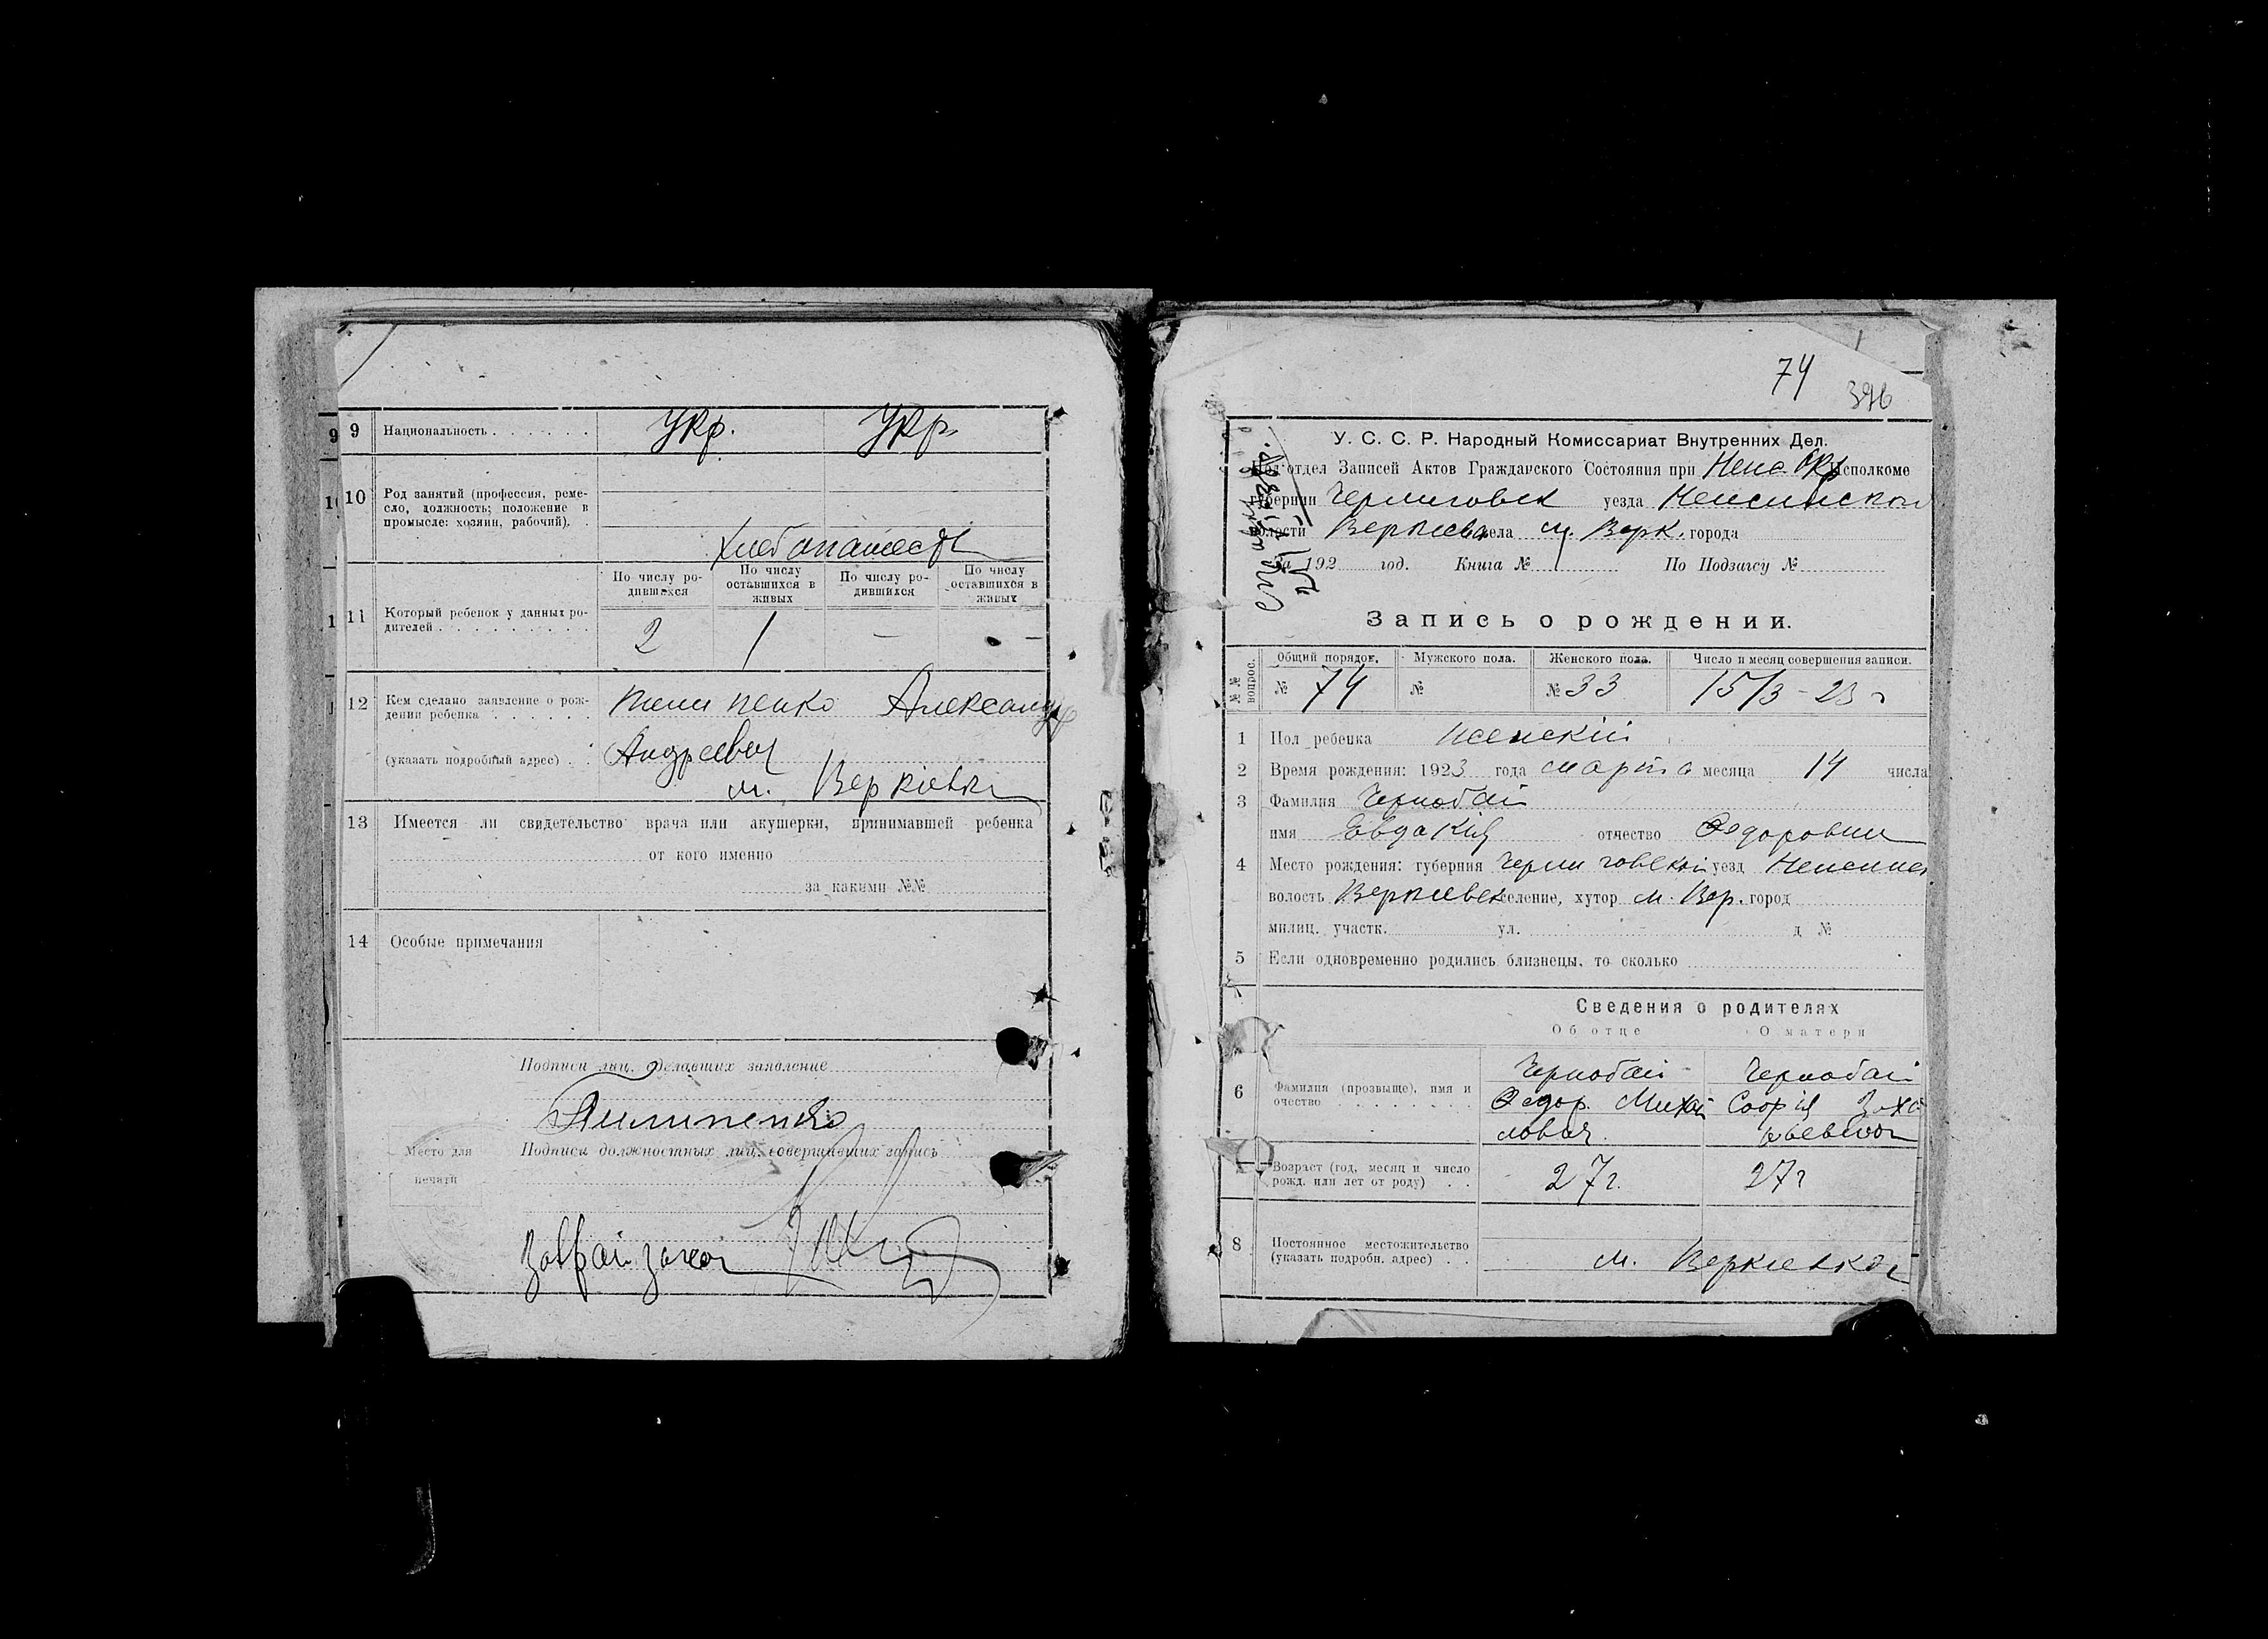 9 Национальность Укр. Укр.
10 Род занятий (профессия, реме-
сло, должность; положение в
промысле: хозяин, рабочий).
Хлебопашество
11 Который ребенок у данных ро-
дителей
По числу ро-
дившихся
По числу
оставшихся в
живых
По числу ро-
дившихся
По числу
оставшихся в
живых
2 1 — —
12 Кем сделано заявление о рож-
дении ребенка
Пилипенко Александр
(указать подробный адрес)
Андреевич
м. Веркіевка
13 Имеется ли свидетельство врача или акушерки, принимавшей ребенка
от кого именно
за какими №№
14 Особые примечания
Подписи лиц, делавших заявление
Пилипенко
Место для
печати
Подписи должностных лиц, совершивших запись
74
396
У. С. С. Р. Народный Комиссариат Внутренних Дел.
Под'отдел Записей Актов Гражданского Состояния при Неж. Окр Исполкоме
губернии Черниговск уезда Нежинском
волости Веркиев села м. Верк. города
За 192 год. Книга № По Подзагсу №
Запись о рождении.
№№ вопрос.
Общий порядок. Мужского пола. Женского пола. Число и месяц совершения записи.
№ 74 № № 33 15/3 - 23 г
1 Пол ребенка женскій
2 Время рождения: 1923 года марта месяца 14 числа
3 Фамилия Чернобай
имя Евдокія отчество Федоровна
4 Место рождения: губерния Черниговской уезд Нежинск
волость Веркиевск селение, хутор м. Вер. город
милиц. участк. ул. д №
5 Если одновременно родились близнецы, то сколько
Сведения о родителях
Об отце О матери
6 Фамилия (прозвыще), имя и
очество
Чернобай Чернобай
Федор Михай Софія Заха
лович. рьевна
Возраст (год, месяц и число
рожд. или лет от роду)
27 г. 27 г
8 Постоянное местожительство
(указать подробн. адрес)
м. Веркиевка